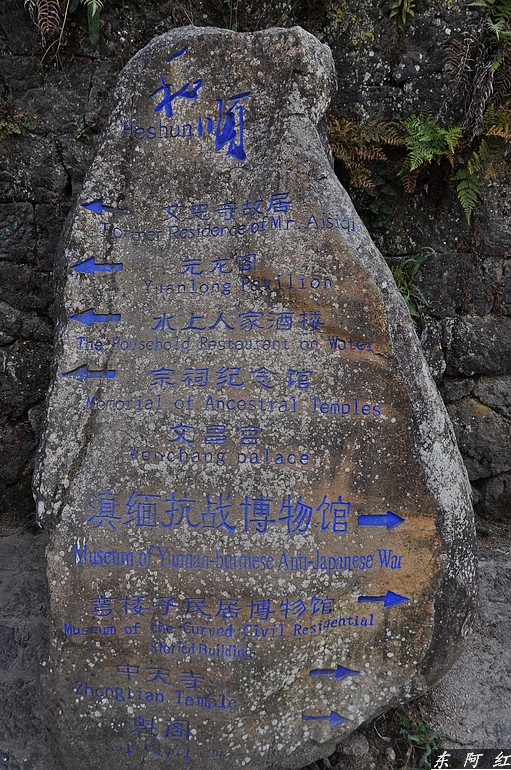 和顺
Heshun
艾思奇故居
Former Residence of Mr. Aisiqi
元龙阁
Yuanlong Pavilion
水上人家酒楼
The Household Restaurant on Water
宗祠纪念馆
Memorial of Ancestral Temples
文昌宫
Wenchang palace
滇缅抗战博物馆
Museum of Yunnan-burmese Anti-Japanese War
弯楼子民居博物馆
Museum of the Curved Civil Residential
Storied Building
中天寺
Zhongtian Temple
魁阁
东阿红